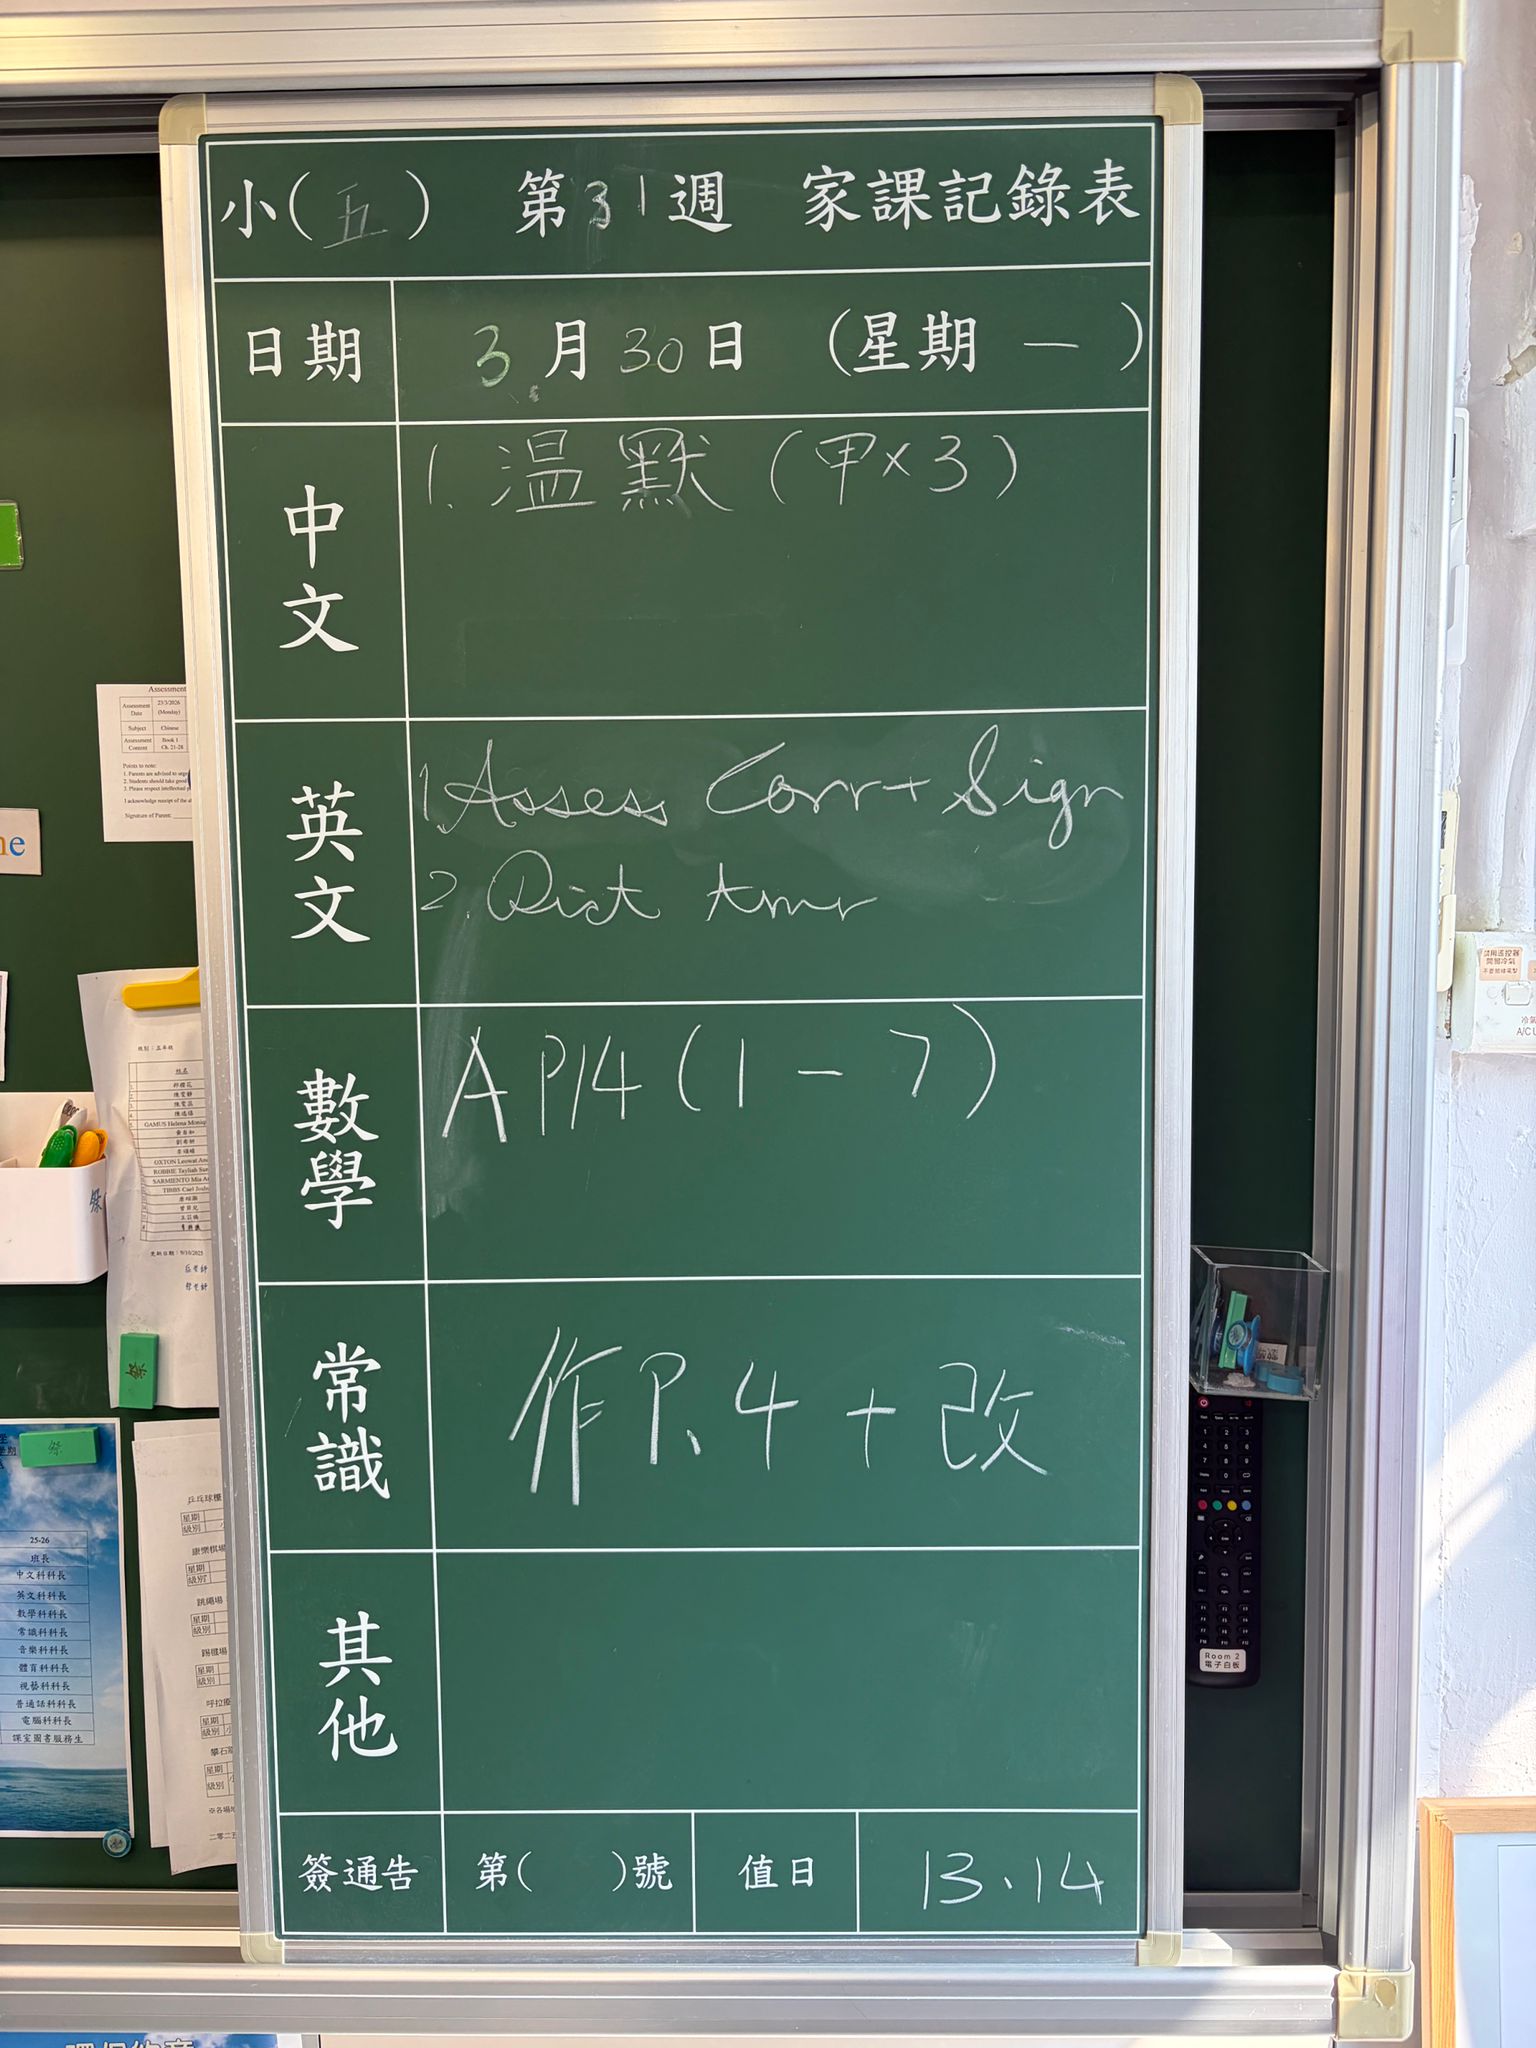 小(五) 第31週 家課記錄表
日期 3月30日 (星期一)
中文
1. 温默 (甲×3)
英文
1. Assess Corr + Sign
2. Dict tmr
數學
A P14 (1 - 7)
常識
作P.4 + 改
其他
簽通告 第( )號 值日 13.14
Assessment
Assessment Date 23/3/2026 (Monday)
Subject Chinese
Assessment Content Book 1 Ch. 21-28
Points to note:
Signature of Parent:
班別：五年級
姓名
GAMUS Helena
更新日期：9/10/2025
25-26
班長
中文科科長
英文科科長
數學科科長
常識科科長
音樂科科長
體育科科長
視藝科科長
普通話科科長
電腦科科長
課室圖書服務生
乒乓球檯
星期
級別
康樂棋場
星期
級別
跳繩場
星期
級別
星期
級別
星期
級別
星期
級別
Room 2
電子白板
A/C